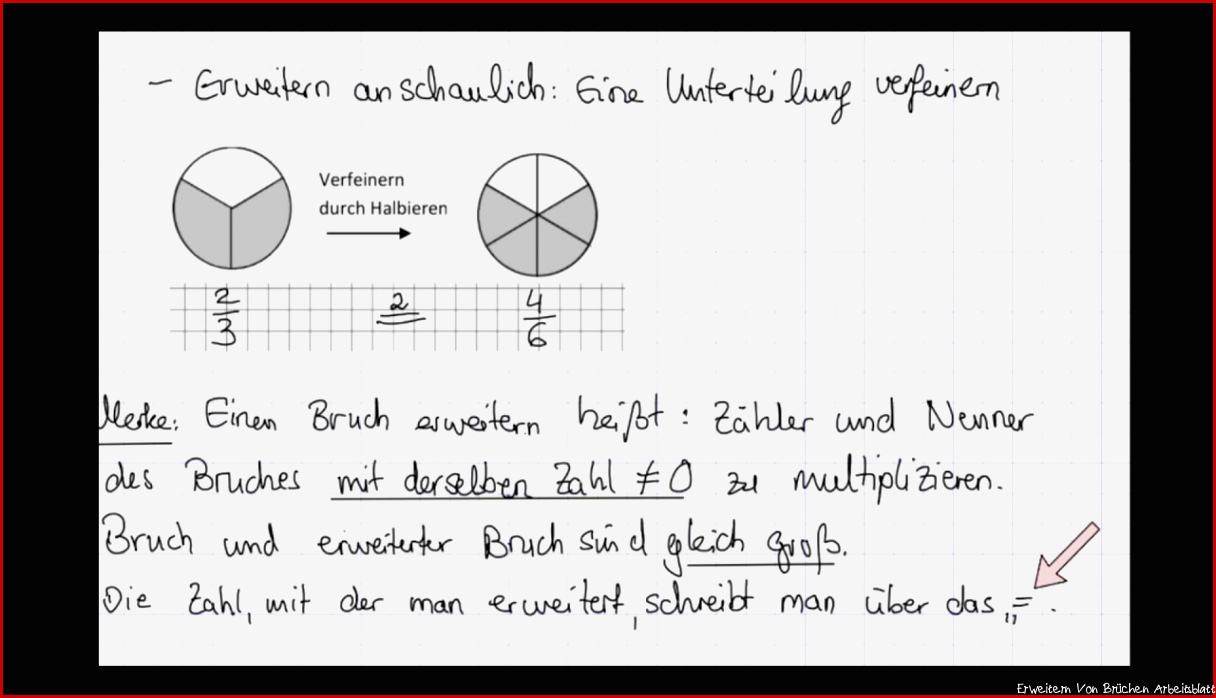 - Erweitern anschaulich: Eine Unterteilung verfeinern
Verfeinern
durch Halbieren
2/3 2= 4/6
Merke: Einen Bruch erweitern heißt: Zähler und Nenner
des Bruches mit derselben Zahl ≠ 0 zu multiplizieren.
Bruch und erweiterter Bruch sind gleich groß.
Die Zahl, mit der man erweitert, schreibt man über das „=".
Erweitern Von Brüchen Arbeitsblatt